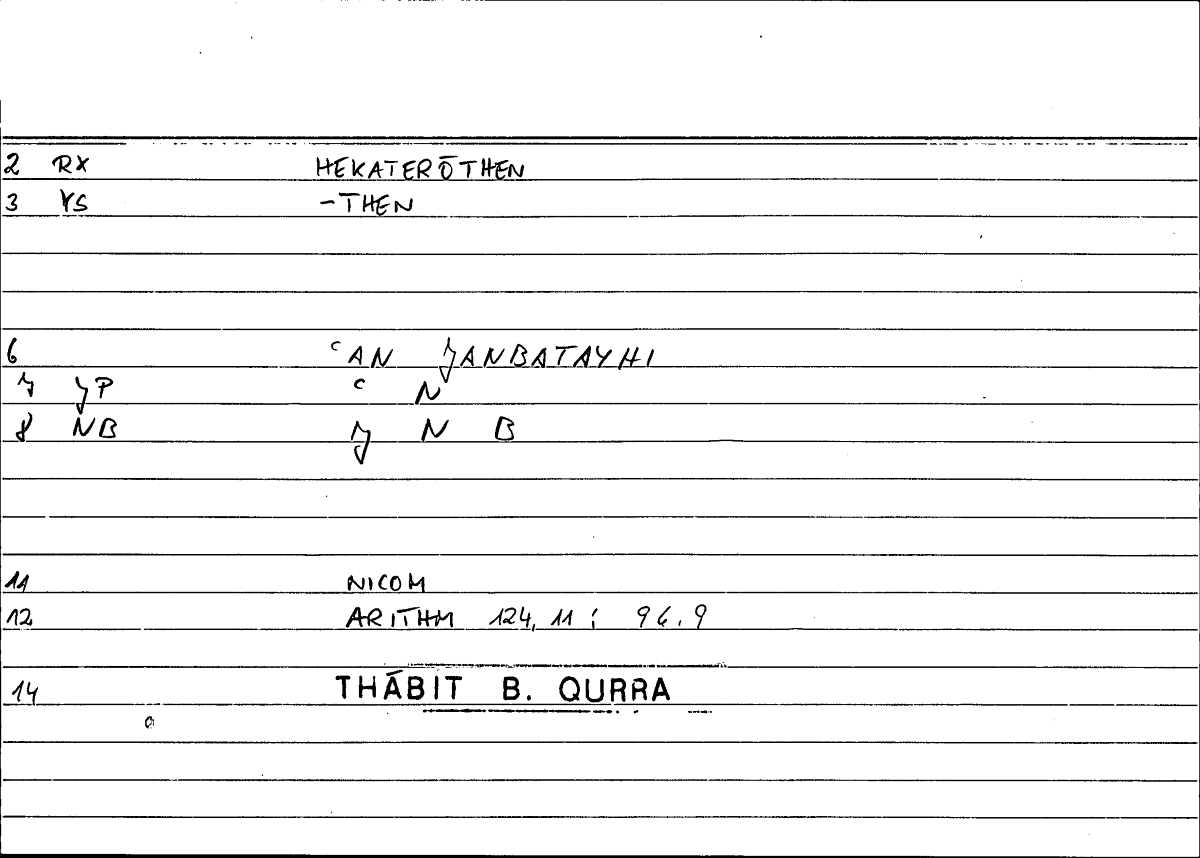 2 RX HEKATERŌTHEN
3 YS -THEN
6 ʿAN JANBATAYHI
7 JP ʿ N
8 NB J N B
11 NICOM
12 ARITHM 124, 11 ; 96.9
14 THĀBIT B. QURRA